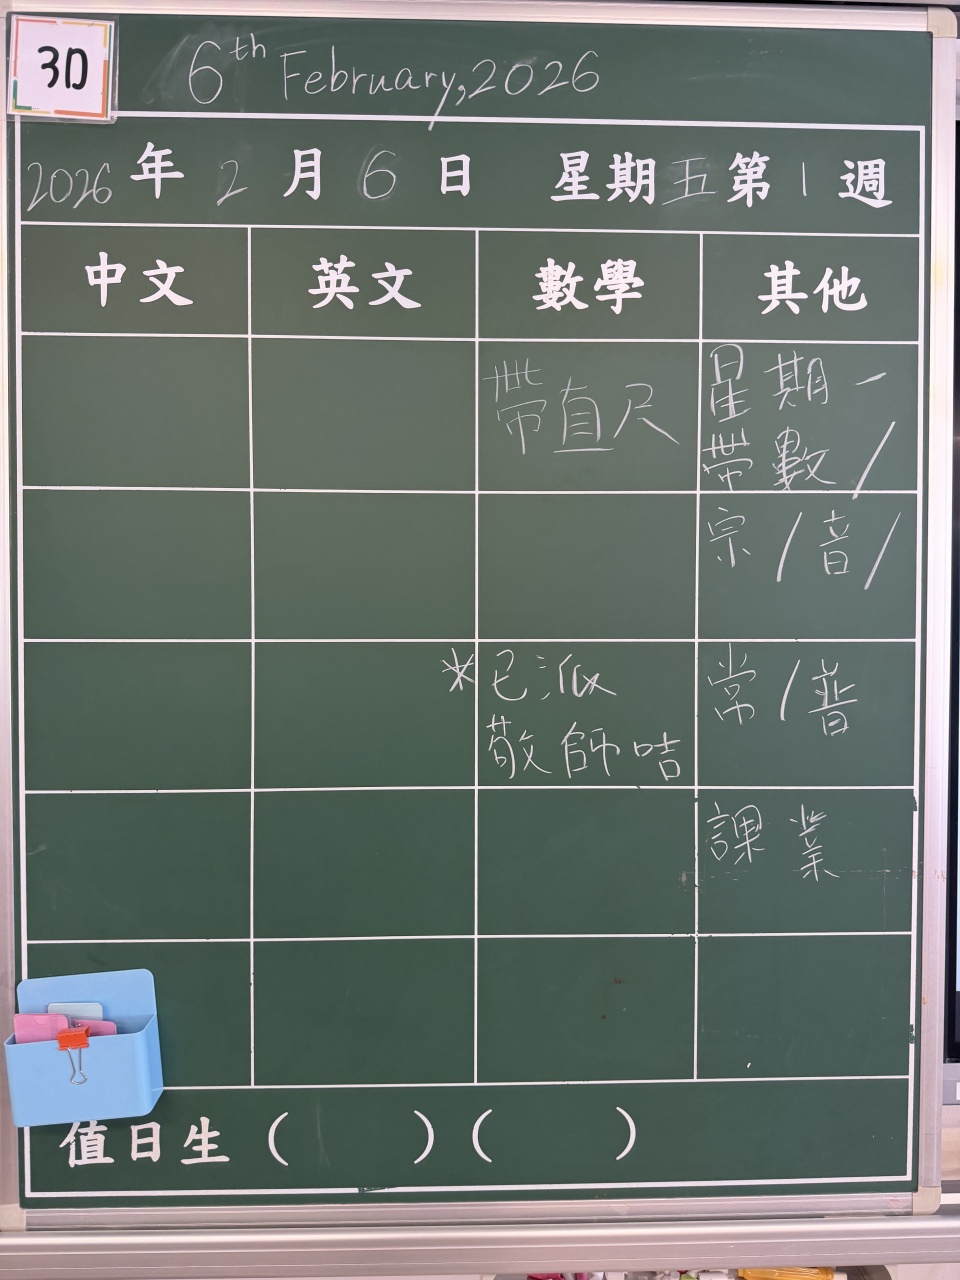 3D
6th February, 2026
2026年2月6日 星期五第1週
中文 英文 數學 其他
帶直尺
星期一
帶數/
宗/音/
*已派
敬師咭
常/普
課業
值日生( )( )